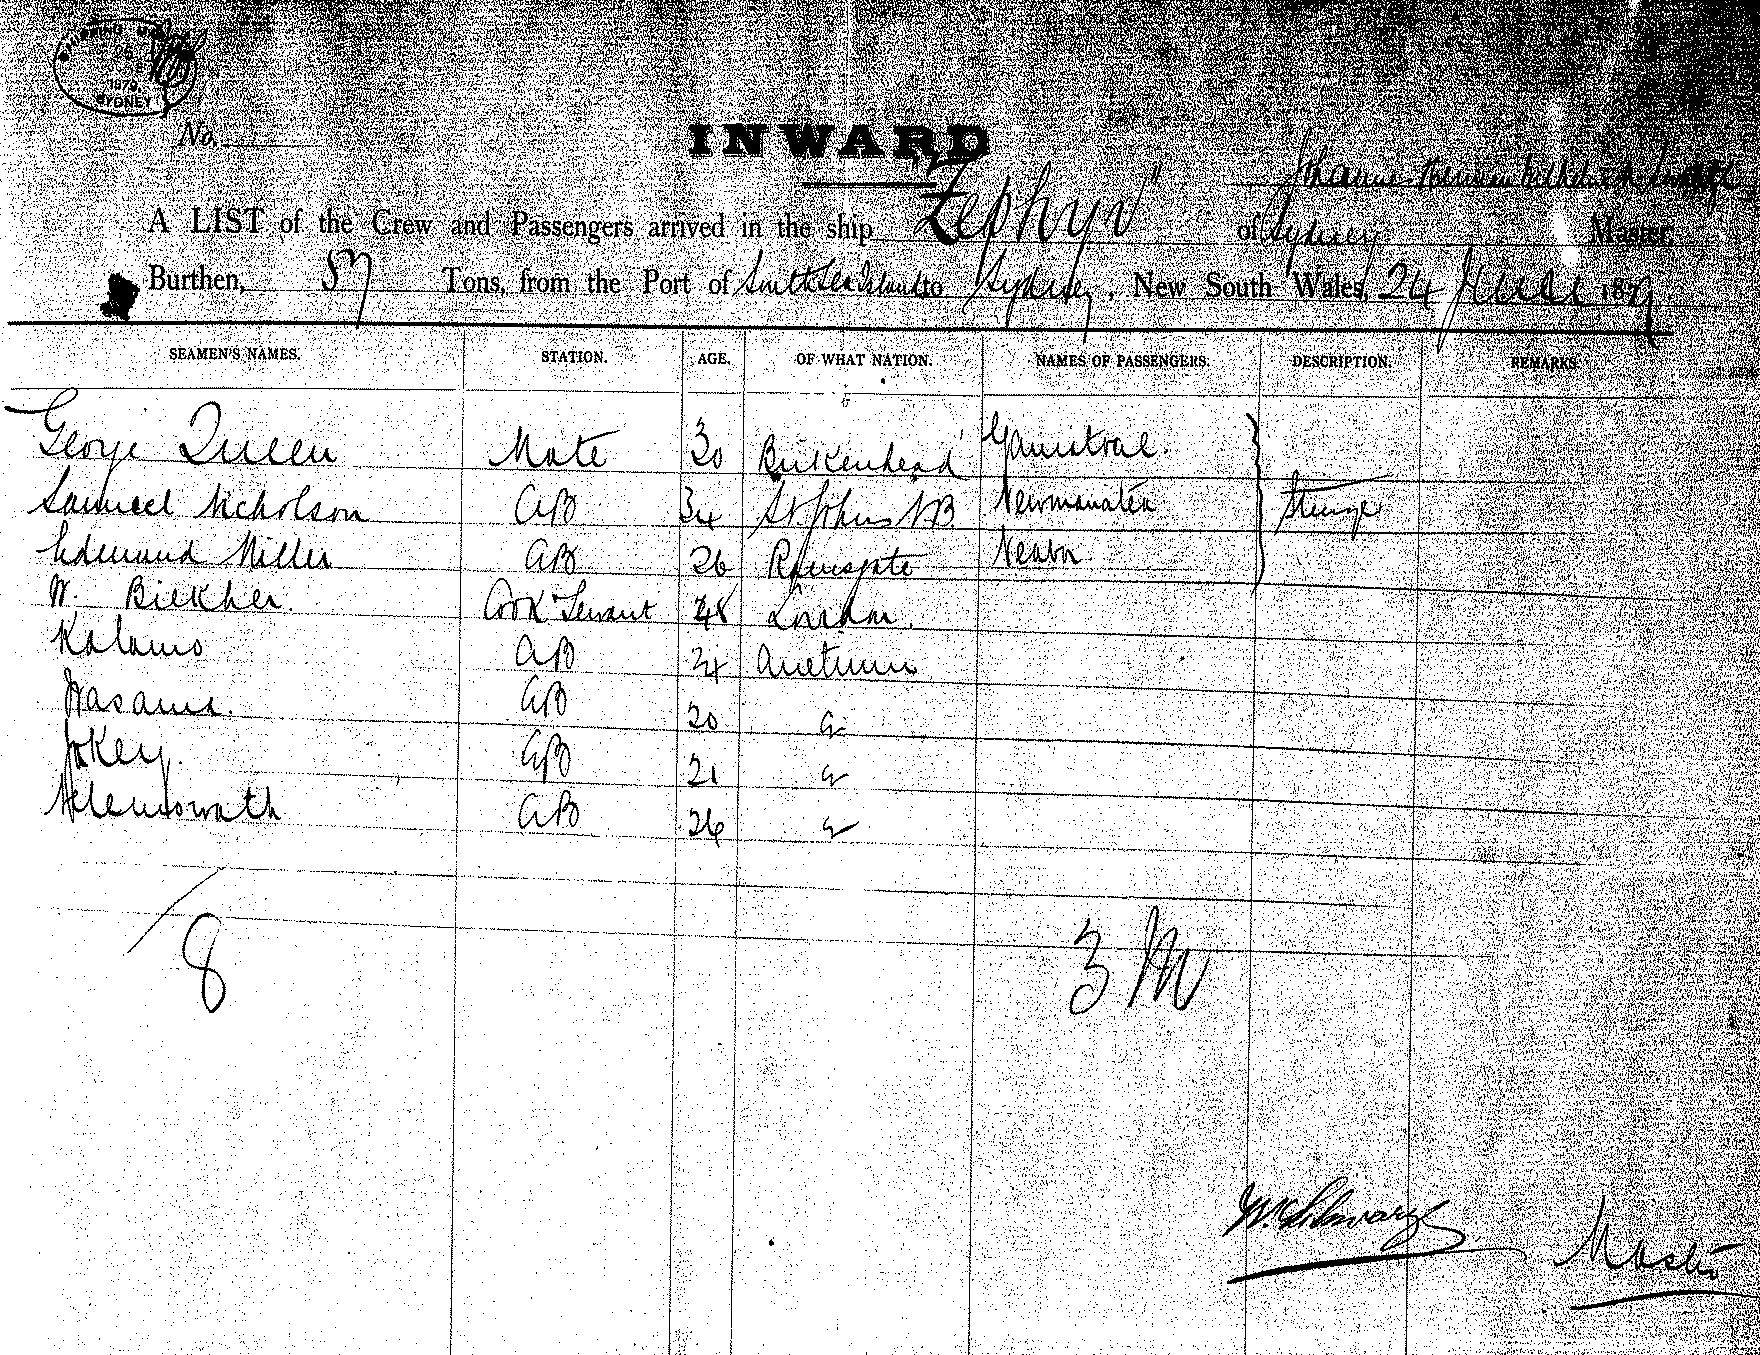 SHIPPING
1879
SYDNEY
No.
INWARD
A LIST of the Crew and Passengers arrived in the ship Zephyr" of Sydney Master,
Burthen, 57 Tons, from the Port of South Sea Island to Sydney, New South Wales, 24 June 1879
SEAMEN'S NAMES. STATION. AGE. OF WHAT NATION. NAMES OF PASSENGERS. DESCRIPTION. REMARKS.
George Queen Mate 30 Birkenhead
Samuel Nicholson AB 34 St Johns NB Steerage
Edmund Miller AB 26 Ramsgate
W. Cook Servant London.
Kalamo AB 24
AB 20
Jokey. AB 21
AB 26
8 3 M
W. Schwarz Master